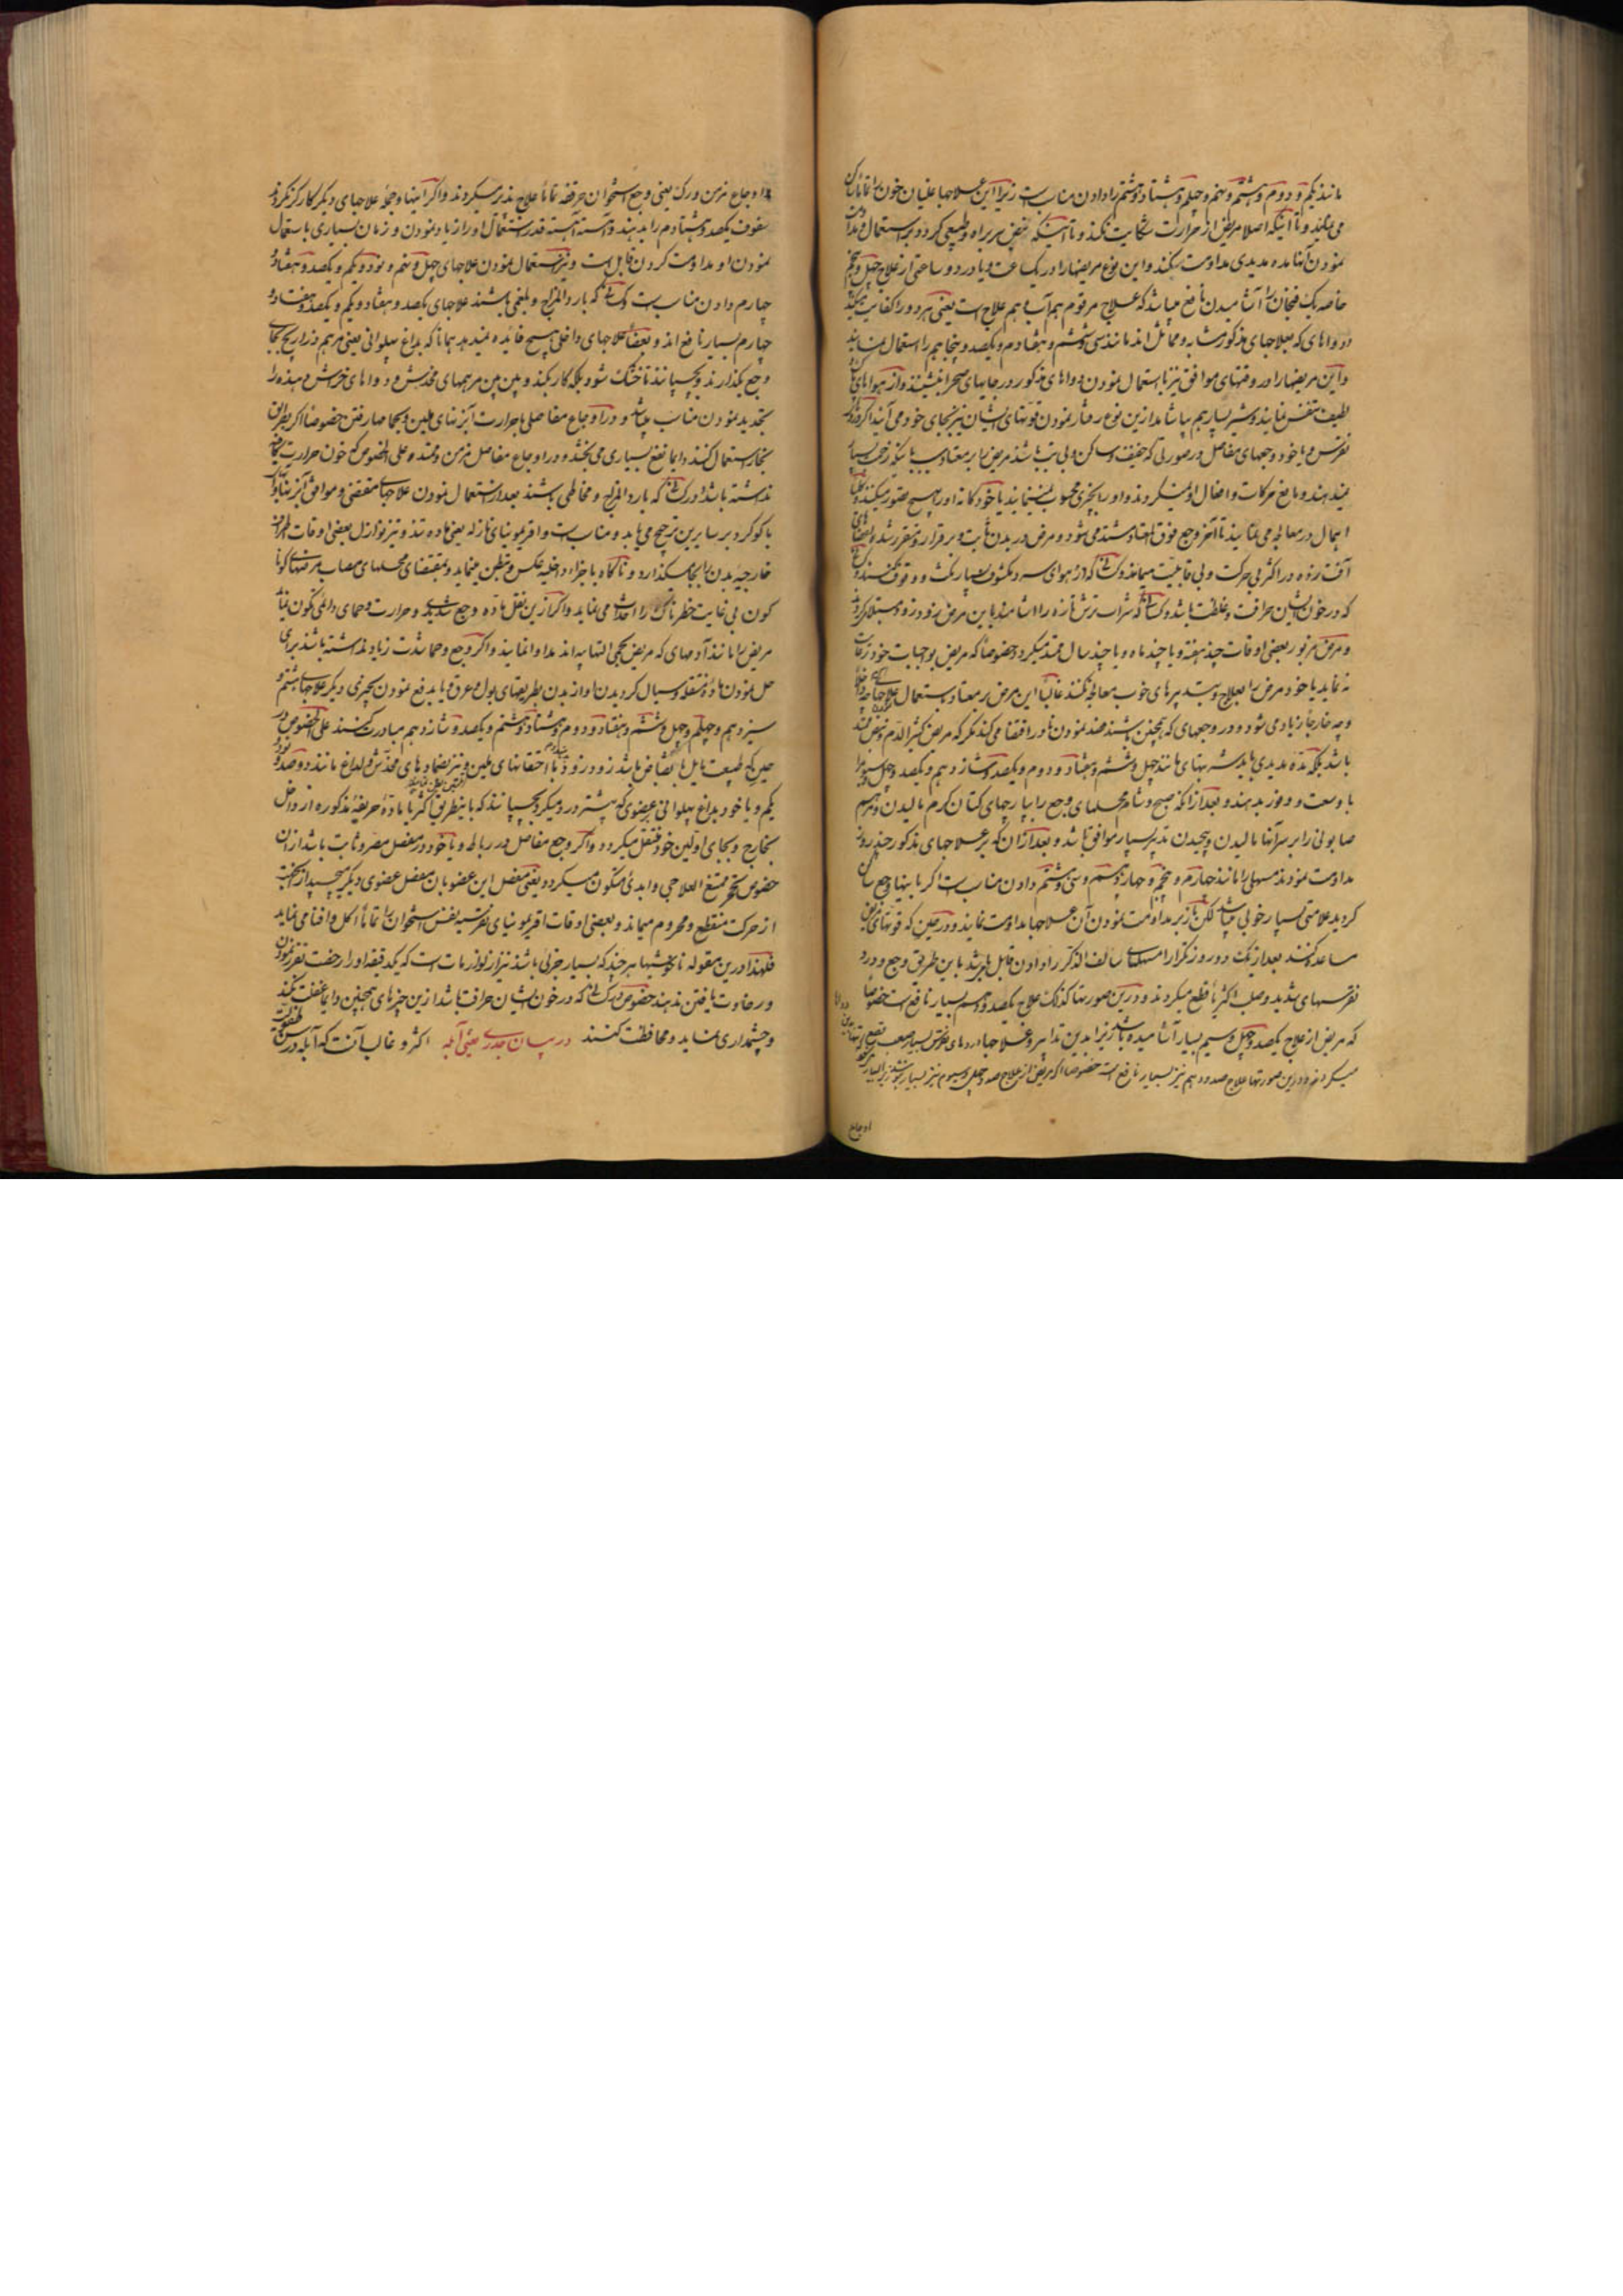 مانند یکم و دووم و هشتم و پنجم و چهلم و هشتاد و ششم را دادن مناسبست زیرا این علاجها غلیان خون را تماماً ساکن
می نمایند و تا اینکه اصلا مریض از حرارت شکایت نکند و تا اینکه نبض سربراه و طبیعی گردد بر استعمال
نمودن آنها مده مدیدی مداومت بکنند و این نوع مریضها را در یکساعت و یا در دو ساعتی از علاج چهل و پنجم
خاصه یک فنجان را آشامیدن نافع میباشد که علاج مرقوم هم آب و هم علاج است یعنی هر دو را کفایت میکند
دواهای که بعلاجهای مذکور مشابه و مماثل اند مانند سی و ششم و هفتادم و یکصد و پنجاهم را استعمال نمایند
و این مریضها را در وقتهای موافق نیز باستعمال نمودن دواهای مذکور در جایهای صحرا بنشینند و از هوا
لطیف تنفس نمایند و شیر بسیار هم بیاشامند ازین نوع رفتار نمودن قوتهای ایشان نیز بجای خود می آیند اگر
نقرس و یا خود وجعهای مفاصل در صورتی که خفیف و ساکن و بی تب باشد مریض را بر معتاد و سبب
نمیدهند و مانع حرکات و افعال او نمیگردند و او را بچیزی محسوب نمینمایند یا خودکانه او را هیچ تصور نمیکنند
اهمال در معالجه می نمایند تا آخر وجع فوق العاده مشتد می شود و مرض در بدن ثابت و برقرار و متقرر شده
آفت زده در اکثر بی حرکت و بی قابلیت میماند و کسانی که از هوای سرد مکشوف بسیار نشت و وقوف میکنند
که در خون ایشان حرافت و غلظت باشد و کسانی که شراب ترش تازه را اشامند باین مرض زود زود مبتلا میگردند
و مرض مزبور بعضی اوقات چند هفته و یا چند ماه و یا چند سال ممتد میگردد خصوصا که مریض بوجبات خود رعایت
نه نماید یا خود مرض را بعلاج و تدبیرهای خوب معالجه نکنند غالباً این مرض بر معتاد و باستعمال علاجهای
و چه خارجاً زیاد می شود و در وجعهای که همچنین باشند فصد نمودن نادر اقتضا می کند مگر که مریض کثیر الدم و نبض ممتد
باشد بلکه مدّه مدیدی باید شربتهای مانند چهل و ششم و هفتاد و دووم و یکصد و شازدهم و یکصد و چهل و سیوم را
با وسعت و وفور بدهند و بعد از آنکه صبح و شام محلهای وجع را با پارچهای کتان گرم مالیدن و مرهم
صابونی را بر سر آنها مالیدن و پیچیدن تدبیر بسیار موافق باشد و بعد از آن که بر علاجهای مذکور چند روز
مداومت نمودند مسهلی را مانند چهارم و پنجم و چهاردهم و سی و هشتم دادن مناسبست اگر باینها وجع ساکن
گردید علامتی بسیار خوبی میباشد لکن باز بر مداومت نمودن آن علاجها مداومت نمایند و در حین که قوتهای مریض
مساعد کنند بعد از یک دو روز تکرارا مسهلهای سالف الذکر را دادن قابل باشد باین طریق وجع و درد
نقرسهای شدید و صلب اکثریا قطع میگردند و درین صورتها کذلک علاج یکصد و دهم بسیار نافع است خصوصا
که مریض از علاج یکصد و چهل و سیم بسیار آشامیده باشد زیرا بدین تدابیر و علاجها دردهای نقرس بسیار صعب قطع
میگردند و درین صورتها علاج صد و دهم نیز بسیار نافع است خصوصا اگر مریض از علاج صد و چهل و سیوم نیز بسیار بنوشد
اوجاع
اوجاع مزمن ورک یعنی وجع استخوان حرقفه تماماً علاج پذیر میگردند و اگر اینها و جملهٔ علاجهای دیگر کارگر نگردند
سفوف یکصد و هشتادم را بدهند و آهسته آهسته قدر استعمال او را زیاد نمودن و زمان بسیاری باستعمال
نمودن او مداومت کردن قابل است و نیز استعمال نمودن علاجهای چهل و پنجم و نود و یکم و یکصد و هفتاد و
چهارم دادن مناسبست و کسانی که بارد المزاج و بلغمی باشند علاجهای یکصد و هفتاد و یکم و یکصد و هفتاد و
چهارم بسیار نافع اند و بعضاً علاجهای داخلی هیچ فائده نمیدهد همانا که بداغ پهلوانی یعنی مرهم ذراریح بجای
وجع بگذارند و بچسپانند تا خشک شود بلکه کار بکند و پین پین مرهمهای مخدش و دواهای خرش دهنده را
تجدید نمودن مناسب میباشد و در اوجاع مفاصلی باحرارت آبزنهای ملین و بحمامها رفتن خصوصا اگر بطریق
بخار استعمال کنند دایما نفع بسیاری می بخشد و در اوجاع مفاصل مزمن و ممتده علی الخصوص که خون حرارت
نداشته باشد او را کسانی که بارد المزاج و مخاطی باشند بعد از استعمال نمودن علاجهای مقتضی و موافق آبزنهای
با گوگرد بر سایرین ترجیح می یابد و مناسبست و اقریمونیای نازله یعنی ماده تند و تیز نوازل بعضی اوقات اطراف
خارجیهٔ بدن را بجا میگذارد و ناگاه باجزاء داخلیه عکس و تبطن مینماید و بمقتضای محلهای مصاب مرضهای گونا
گون بی غایت خطرناک را احداث می نماید و اگر ازین نقل ماده وجع شدید و حرارت و حمای دائمی تکون نماید
مریض را مانند آدمهای که مریض بحمی التهابیه اند مداوا نمایند و اگر وجع و حما شدت زیاد نداشته باشند برای
حل نمودن مادهٔ منتقله و سیال گردیدن او از بدن بطریقهای بول و عرق و یا بدفع نمودن بچیزی دیگر علاجهای هشتم و
سیزدهم و چهلم و چهل و ششم و هفتاد و دووم و هشتاد و هشتم و یکصد و شازدهم مبادرت بکنند علی الخصوص در
حینکه طبیعت مایل بانقباض باشد زود زود باحقنهای ملین و نیز بضمادهای مخدش و لداغ مانند دو صد و
یکم و یا خود بداغ پهلوانی عضوی که پیشتر درد میکرد بچسپانند که باینطریق اکثریا مادهٔ حریفهٔ مذکوره از داخل
بخارج و بجای اولین خود منتقل میگردد و اگر وجع مفاصل در رباط و یا خود در مفصل مصر و ثابت باشد از آن
خصوص تحجر ممتنع العلاجی و ابدی متکون میگردد یعنی مفصل این عضو بان مفصل عضوی دیگر میچسپد از این جهت
از حرکت منقطع و محروم میماند و بعضی اوقات اقریمونیای نقرسیه نفس استخوان را تماماً اکل و افنا می نماید
فلهذا درین مقوله ناخوشیها هر چند که بسیار جزئی باشد نیز از لوازمات است که یکدقیقه او را رخصت تقرر نمودن
و رخاوت یافتن ندهند خصوص در کسانی که در خون ایشان حرافت باشد ازین چیزهای همچنین دایما غفلت نکنند
و چشمداری نماید و محافظت کنند در بیان جدری یعنی آبله اکثر و غالب آنست که آبله در سن طفولیت